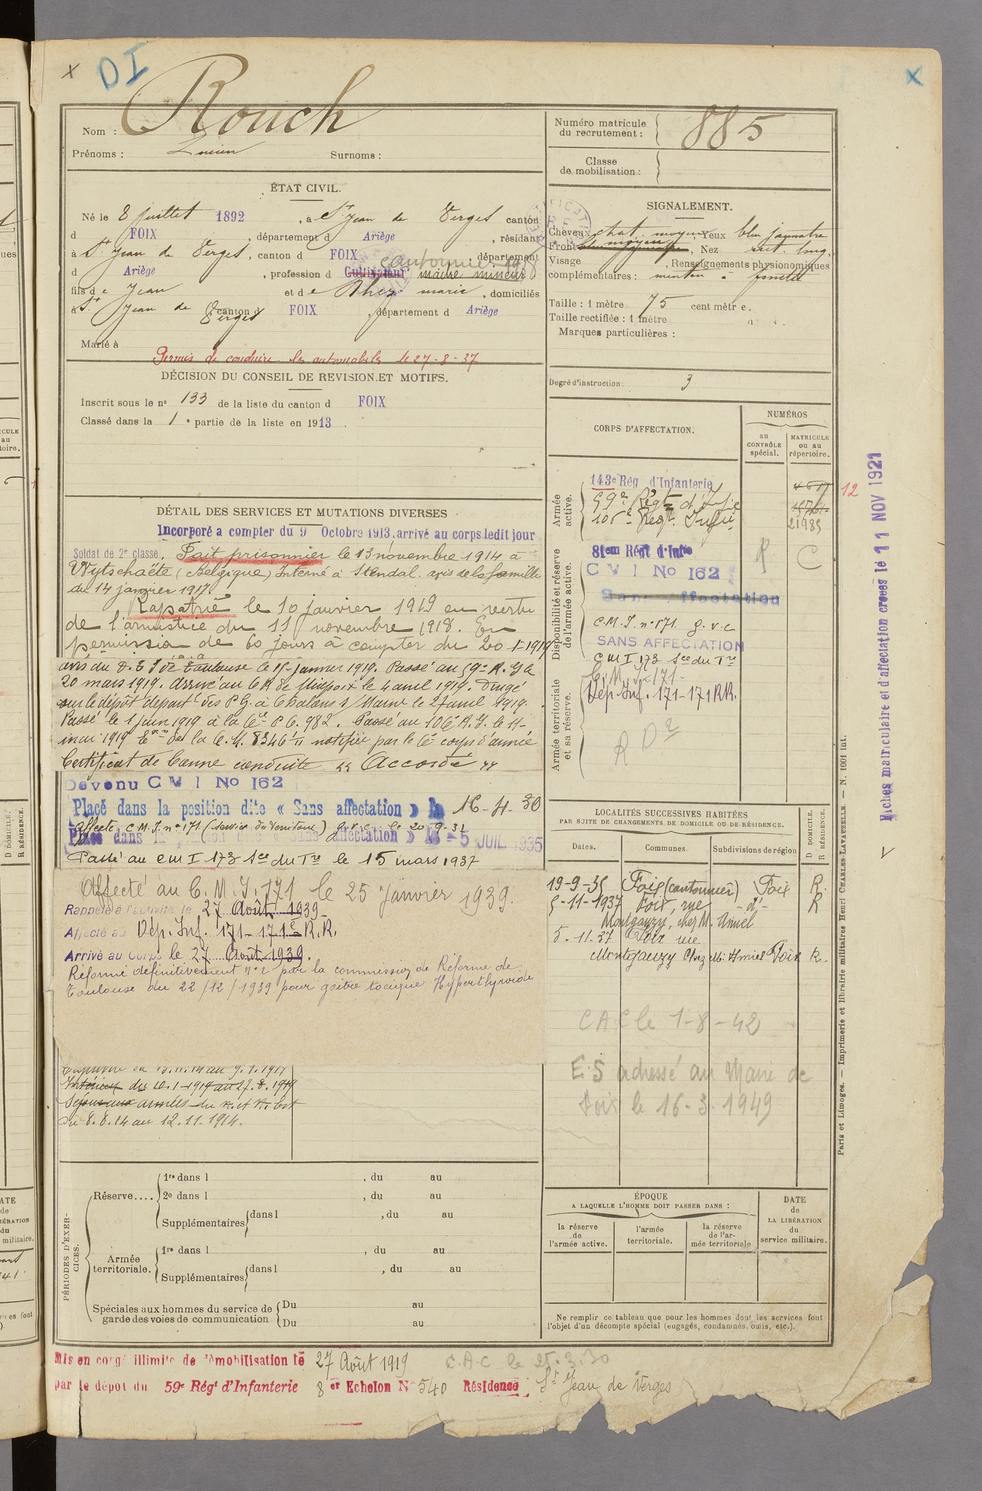 DI
Nom : Rouch
Prénoms : Lucien Surnoms :
ÉTAT CIVIL.
Né le 8 juillet 1892, à St Jean de Verges canton
d FOIX, département d Ariège, résidant
à St Jean de Verges, canton d FOIX département
cantonnier
d Ariège, profession d Cultivateur
fils de Jean et de Rhez marie, domiciliés
à St Jean de Verges canton d FOIX, département d Ariège
Marié à
Permis de conduire les automobiles le 27-8-37
DÉCISION DU CONSEIL DE REVISION ET MOTIFS.
Inscrit sous le no 133 de la liste du canton d FOIX
Classé dans la 1e partie de la liste en 1913.
DÉTAIL DES SERVICES ET MUTATIONS DIVERSES
Incorporé a compter du 9 Octobre 1913. arrivé au corps ledit jour
Soldat de 2e classe, Fait prisonnier le 13 novembre 1914 à
Wytschaëte (Belgique) Interné à Stendal. avis de la famille
du 14 janvier 1917.
Rapatrié le 10 janvier 1919 en vertu
de l'armistice du 11 novembre 1918. En
permission de 60 jours à compter du 20-1-1919
avis du Toulouse le 15 janvier 1919. Passé au 59e R.I. le
20 mars 1919. Arrivé au de Mirepoix le 4 avril 1919. Dirigé
sur le dépôt départ des P.G. à Chalons s/ Marne le 27 avril 1919.
Passé le 1 juin 1919 à la Cie P.G. 982. Passé au 106e R.I. le 11-
mai 1919 de la C.M. notifiée par le 6e corps d'armée
Certificat de bonne conduite "Accordé"
Devenu C M I No 162
Placé dans la position dite « Sans affectation » le 16-4-30
affecté C.M.I. no 171 (service du Territoire) le 20-9-32
Placé dans la affectation » le -5 JUIL 1935
Passé au CMI 173 Son du Tre le 15 mars 1937
Affecté au C.M.I. 171 le 25 Janvier 1939.
Rappelé à l'activité le 27 Août 1939
Affecté au Dép. Inf. 171-171e R.R.
Arrivé au Corps le 27 Août 1939.
Réformé définitivement no 2 par la commission de Réforme de
Toulouse du 22/12/1939 pour goitre toxique Hyperthyroïdie
Intérieur du 10.1-1919 au 27.8.1919
armées
du 8.8.14 au 12.11.1914.
PÉRIODES D'EXERCICES.
Réserve.... 1re dans l , du au
2e dans l , du au
Supplémentaires dans l , du au
Armée territoriale. 1re dans l , du au
Supplémentaires dans l , du au
Spéciales aux hommes du service de garde des voies de communication Du au
Du au
Mis en congé illimité de démobilisation le 27 Août 1919
par le dépôt du 59e Régt d'Infanterie 8er Echelon N° 540 Résidence : St Jean de Verges
C.A.C. le 25.3.30
Numéro matricule du recrutement : 885
Classe de mobilisation :
SIGNALEMENT.
Cheveux chat. moyen Yeux bleu jaunâtre
Front moyen, Nez rect. long
Visage, Renseignements physionomiques
complémentaires : menton à fossette
Taille : 1 mètre 75 centimètre.
Taille rectifiée : 1 mètre
Marques particulières :
Degré d'instruction : 3
CORPS D'AFFECTATION.
NUMÉROS
au CONTRÔLE spécial.
MATRICULE ou au répertoire.
Armée active.
143e Rég d'Infanterie
59e Régt d'Infie
106e Régt Infie
21985
12
Disponibilité et réserve de l'armée active.
81em Régt d'Infie
C M I No 162
Sans affectation
C.M.I. no 171 g.v.c
SANS AFFECTATION
CMI 173 Son du Tre
Armée territoriale et sa réserve.
C.M. 171-
Dép. Inf. 171-171 RR.
R
C
LOCALITÉS SUCCESSIVES HABITÉES
PAR SUITE DE CHANGEMENTS DE DOMICILE OU DE RÉSIDENCE.
Dates. Communes. Subdivisions de région D DOMICILE. R RÉSIDENCE.
19-9-35 Foix (cantonnier) Foix R.
5-11-1937 Foix, rue -d- R
Montgauzy, chez M. Amiel
5.11.37 Foix rue
Montgauzy chez M. Amiel Foix R.
CAC le 1-8-42
E.S adressé au Maire de
Foix le 16-3-1949
ÉPOQUE
A LAQUELLE L'HOMME DOIT PASSER DANS :
la réserve de l'armée active.
l'armée territoriale.
la réserve de l'armée territoriale
DATE de LA LIBÉRATION du service militaire.
Ne remplir ce tableau que pour les hommes dont les services font
l'objet d'un décompte spécial (engagés, condamnés, omis, etc.).
Fiches matriculaire et d'affectation créées le 11 NOV 1921
Paris et Limoges. — Imprimerie et librairie militaires Henri CHARLES-LAVAUZELLE. — N. 1001 int.